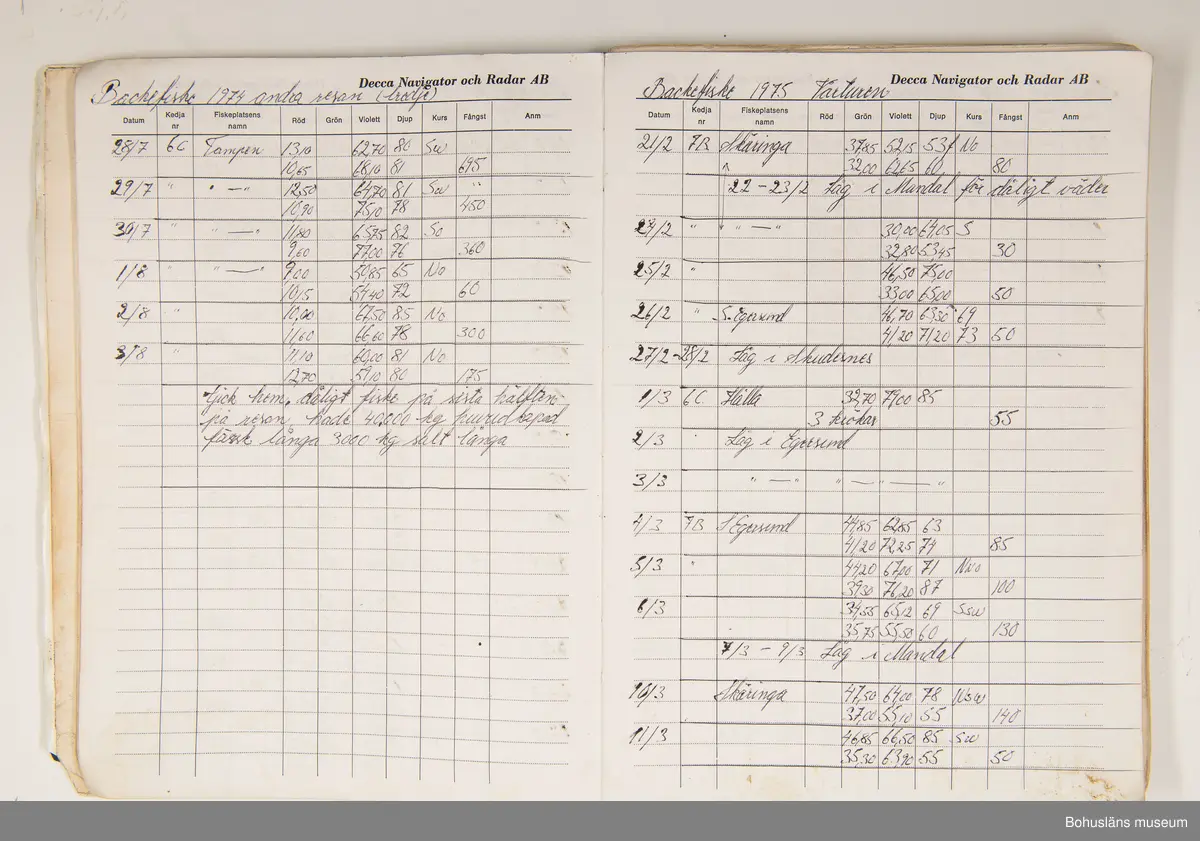 Decca Navigator och Radar AB
Backefiske 1974 andra resan (tredje)
Datum Kedja nr Fiskeplatsens namn Röd Grön Violett Djup Kurs Fångst Anm
28/7 6C Tampen 13,10 62,70 80 Sw
10,65 68,10 81 695
29/7 " " — " 12,50 64,70 81 Sw "
10,90 75,10 78 450
30/7 " " — " 11,80 65,75 82 So
9,60 77,00 76 360
1/8 " " — " 9,00 50,85 65 No
10,15 54,40 72 60
2/8 " 10,00 67,50 85 No
11,60 66,60 78 300
3/8 " 11,10 60,00 81 No
12,70 59,10 80 175
Gick hem, dåligt fiske på sista hälften
på resan, hade 40,000 kg
färsk långa 3000 kg salt långa
Decca Navigator och Radar AB
Backefiske 1975 Vårturen
Datum Kedja nr Fiskeplatsens namn Röd Grön Violett Djup Kurs Fångst Anm
21/2 7B Skäringa 37,85 52,15 53f No
32,00 62,65 60, 80
22 – 23/2 Låg i Mandal för dåligt väder
24/2 " " — " 30,00 64,05 S
32,80 53,45 30
25/2 " 46,50 75,00
33,00 65,00 50
26/2 " S. Egersund 46,70 63,50 69
41,20 71,20 73 50
27/2 – 28/2 Låg i Skudernes
1/3 6C Hålla 32,70 79,00 85
3 krökar 55
2/3 " Låg i Egersund
3/3 " — " " — " — "
4/3 7B S Egersund 44,85 62,85 63
41,20 72,25 74 85
5/3 " 44,20 67,00 71 Nno
39,30 76,20 87 100
6/3 34,55 65,12 69 Ssw
35,75 55,50 60 130
7/3 – 9/3 Låg i Mandal
10/3 Skäringa 47,50 64,00 78 Nsw
37,00 55,10 55 140
11/3 46,85 66,50 85 Sw
35,30 63,90 55 50
Bohusläns museum